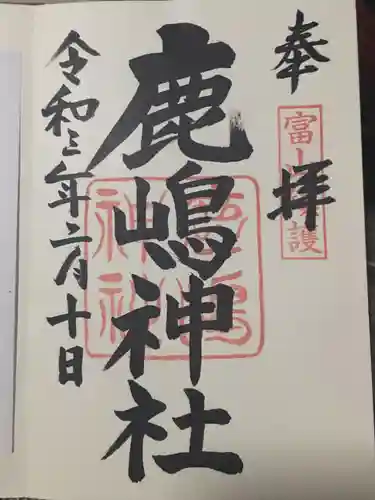 奉拝
富山護
鹿嶋神社
鹿嶋神社
令和三年六月十日